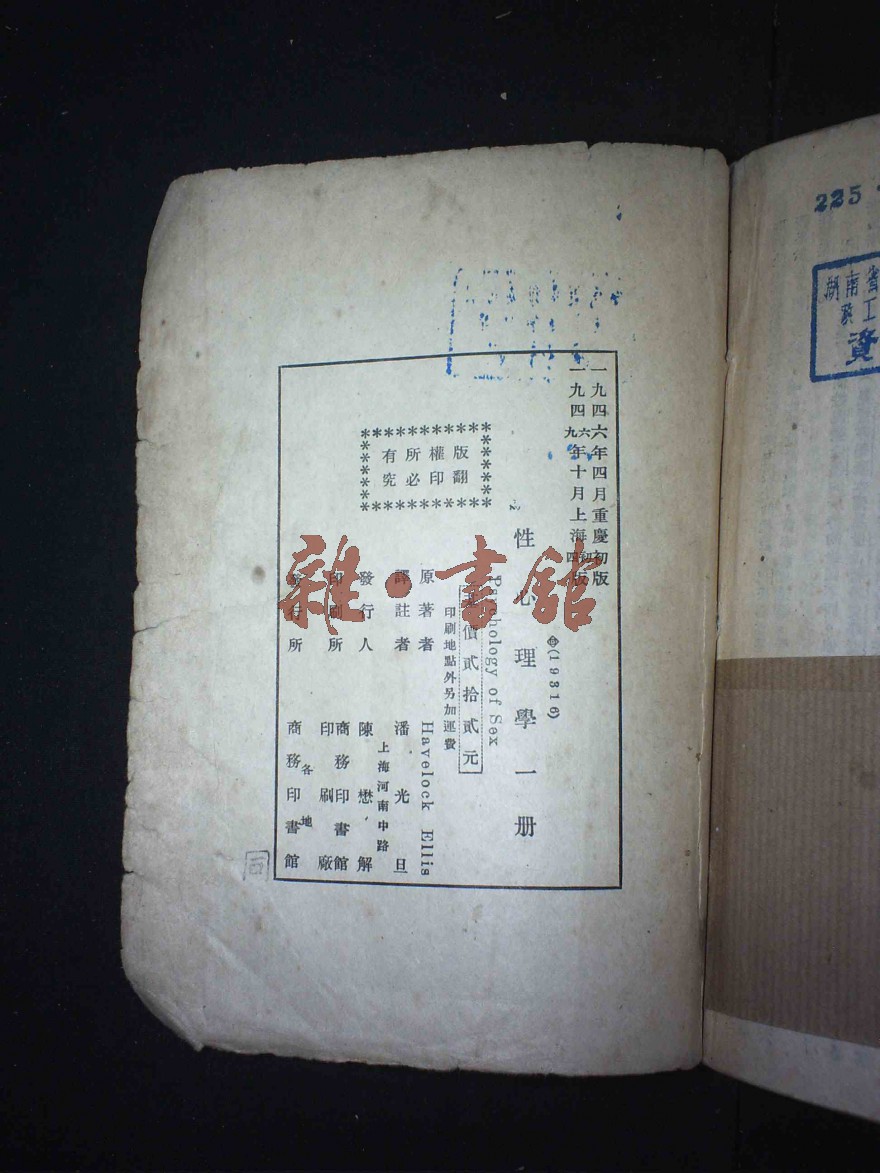 一九四六年四月重慶初版
一九四九年十月上海四版
(19316)
性心理學一册
Psychology of Sex
價貳拾貳元
印刷地點外另加運費
原著者 Havelock Ellis
譯註者 潘光旦
上海河南中路
發行人 陳懋解
印刷所 商務印書館
印刷廠
發行所 商務印書館
各地
版權所有
翻印必究
雜·書館
225
湖南省
資